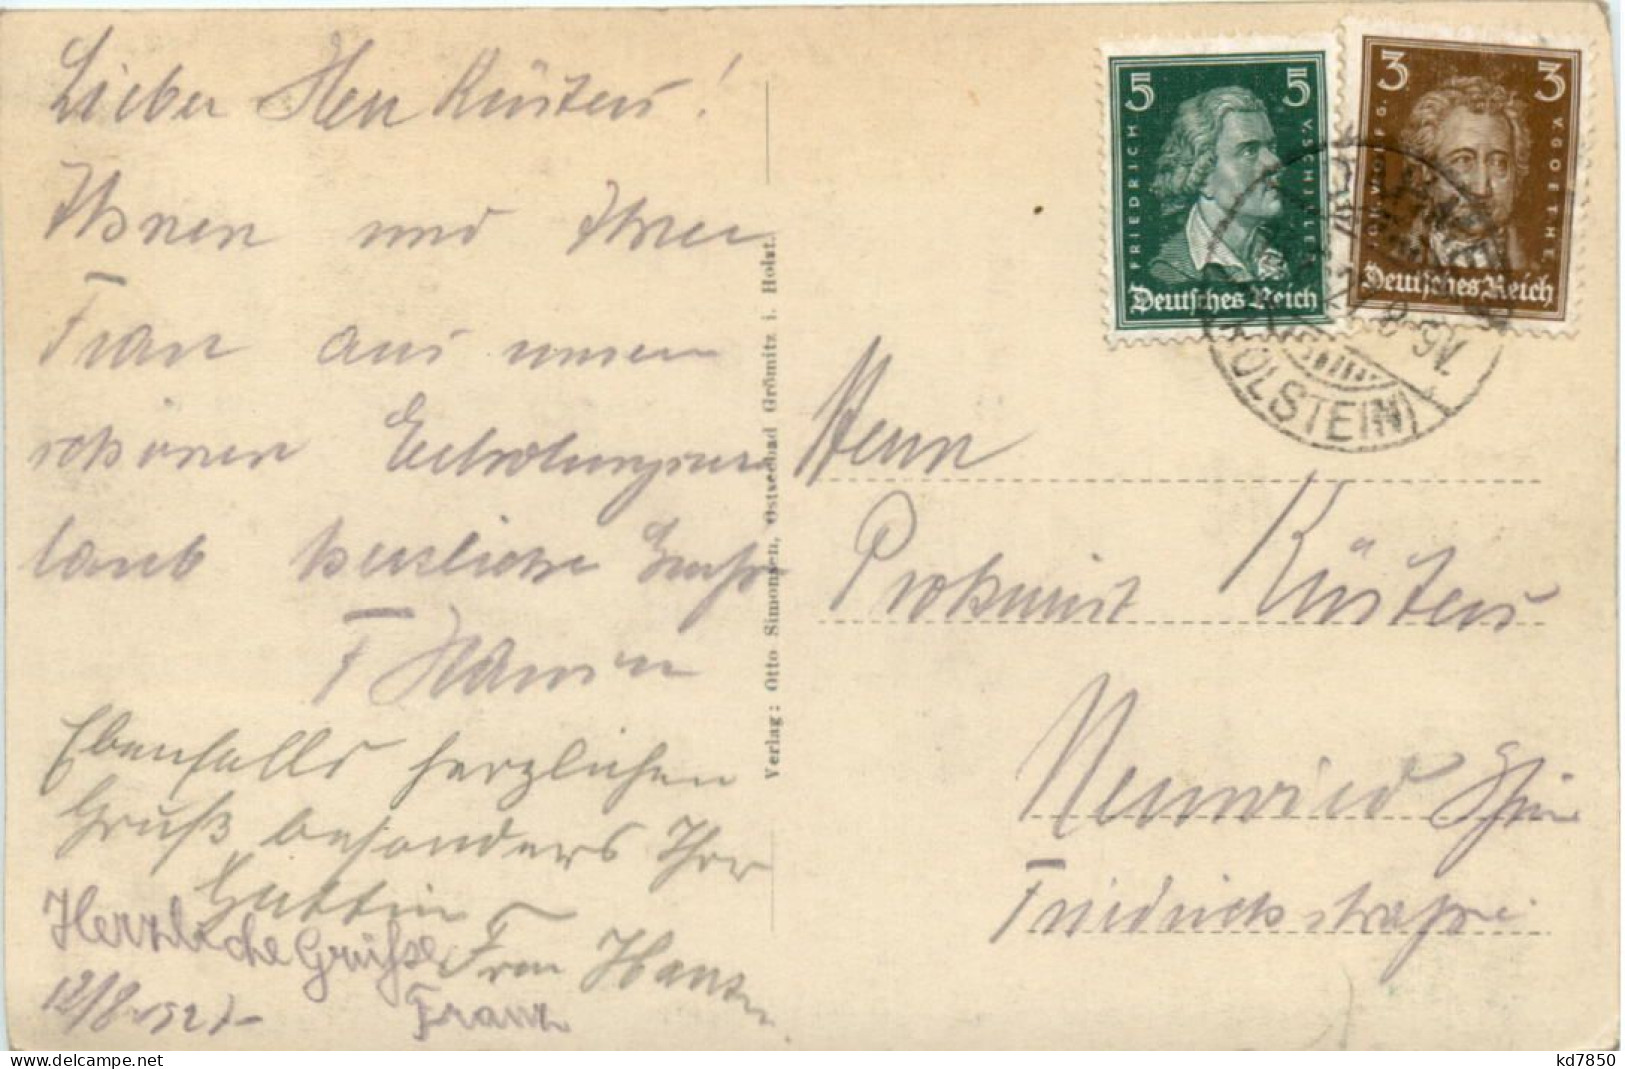 Lieber Herr Küsters!
Ihnen und Ihrer
Frau aus unserm
schönen Erholungsur
laub herzliche Grüße
F
Ebenfalls herzlichen
Gruß, besonders Ihrer
Gattin
Frau
Herzliche Grüße
Franz
12/8.1927
Verlag: Otto Simonsen, Ostseebad Grömitz i. Holst.
5 5
FRIEDRICH V. SCHILLER
Deutsches Reich
3 3
JOH. WOLFG. V. GOETHE
Deutsches Reich
8-9V.
(HOLSTEIN)
Herrn
Prokurist Küsters
Neuwied Rhein
Friedrichstraße
kd7850